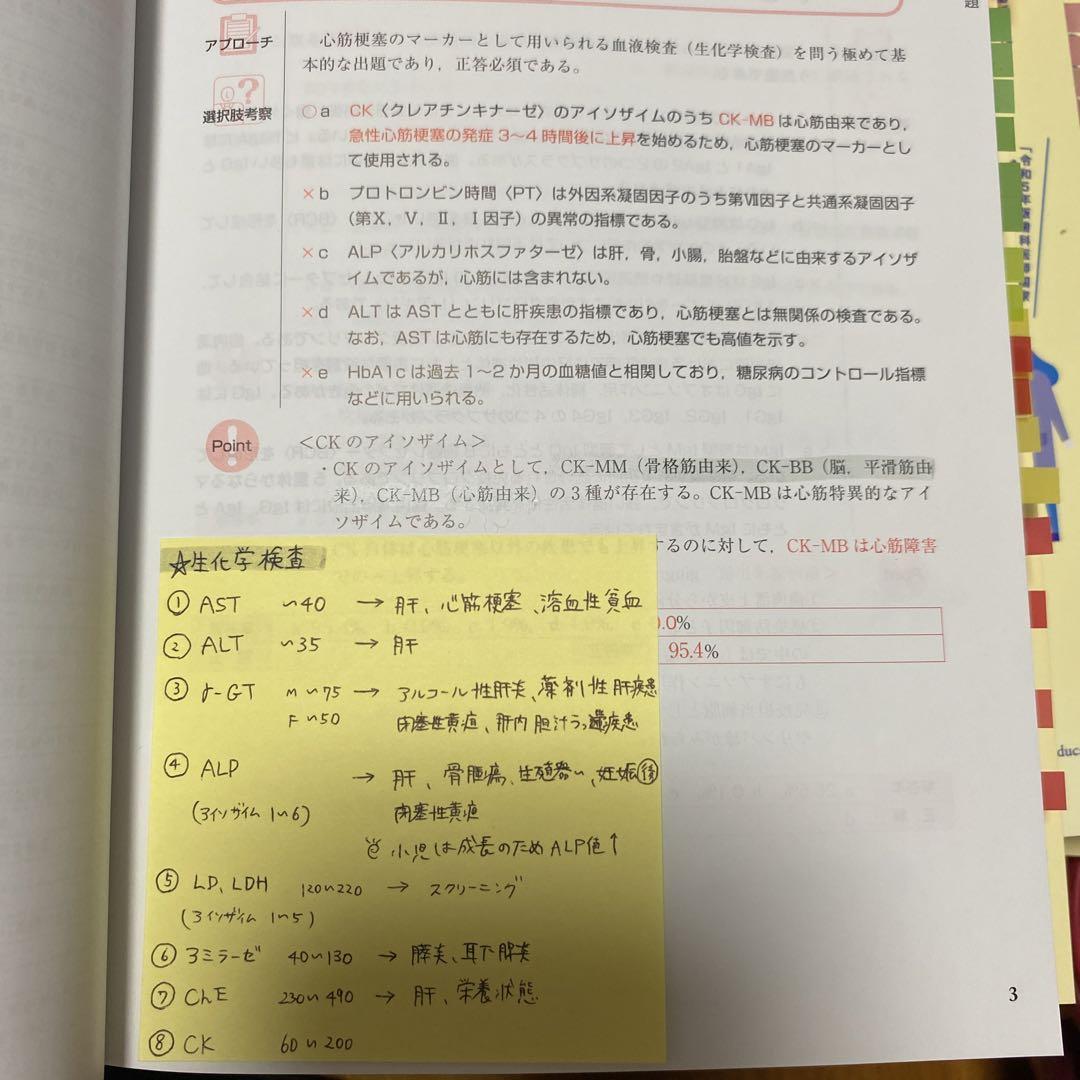 題
アプローチ
心筋梗塞のマーカーとして用いられる血液検査（生化学検査）を問う極めて基
本的な出題であり，正答必須である。
選択肢考察
○a CK〈クレアチンキナーゼ〉のアイソザイムのうちCK-MBは心筋由来であり，
急性心筋梗塞の発症3〜4時間後に上昇を始めるため，心筋梗塞のマーカーとし
て使用される。
×b プロトロンビン時間〈PT〉は外因系凝固因子のうち第Ⅶ因子と共通系凝固因子
（第Ⅹ，Ⅴ，Ⅱ，Ⅰ因子）の異常の指標である。
×c ALP〈アルカリホスファターゼ〉は肝，骨，小腸，胎盤などに由来するアイソザ
イムであるが，心筋には含まれない。
×d ALTはASTとともに肝疾患の指標であり，心筋梗塞とは無関係の検査である。
なお，ASTは心筋にも存在するため，心筋梗塞でも高値を示す。
×e HbA1cは過去1〜2か月の血糖値と相関しており，糖尿病のコントロール指標
などに用いられる。
Point
＜CKのアイソザイム＞
・CKのアイソザイムとして，CK-MM（骨格筋由来），CK-BB（脳，平滑筋由
来），CK-MB（心筋由来）の3種が存在する。CK-MBは心筋特異的なアイ
ソザイムである。
するのに対して，CK-MBは心筋障害
0.0%
95.4%
☆生化学検査
① AST 〜40 → 肝、心筋梗塞、溶血性貧血
② ALT 〜35 → 肝
③ γ-GT M 〜75 → アルコール性肝炎、薬剤性肝疾患
F 〜50 閉塞性黄疸、肝内胆汁うっ滞疾患
④ ALP → 肝、骨腫瘍、生殖器〃、妊娠後
(アイソザイム 1〜6) 閉塞性黄疸
小児は成長のためALP値↑
⑤ LD、LDH 120〜220 → スクリーニング
(アイソザイム 1〜5)
⑥ アミラーゼ 40〜130 → 膵炎、耳下腺炎
⑦ ChE 230〜490 → 肝、栄養状態
⑧ CK 60〜200
3
「令和5年版歯科医師国家
duc